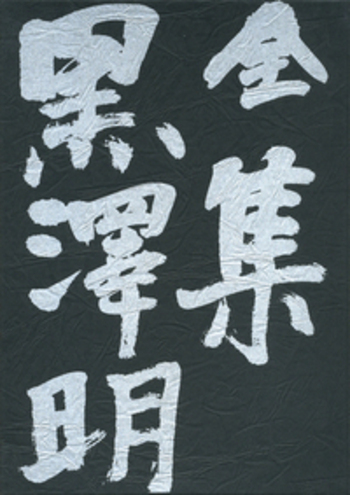 全集
黒澤明